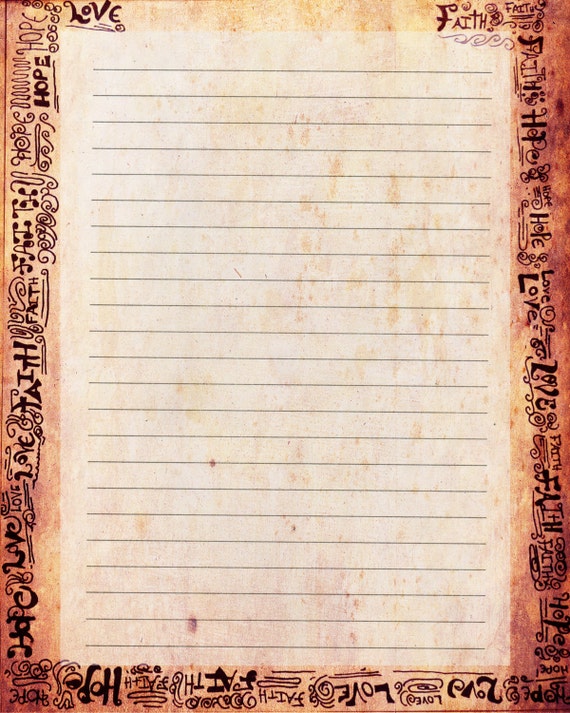 LOVE
FAITH
FAITH
HOPE
HOPE
HOPE
FAITH
FAITH
FAITH
LOVE
LOVE
LOVE
HOPE
FAITH
HOPE
HOPE
HOPE
LOVE
LOVE
LOVE
FAITH
FAITH
FAITH
HOPE
HOPE
HOPE
HOPE
HOPE
FAITH
FAITH
FAITH
LOVE
LOVE
LOVE
LOVE
HOPE